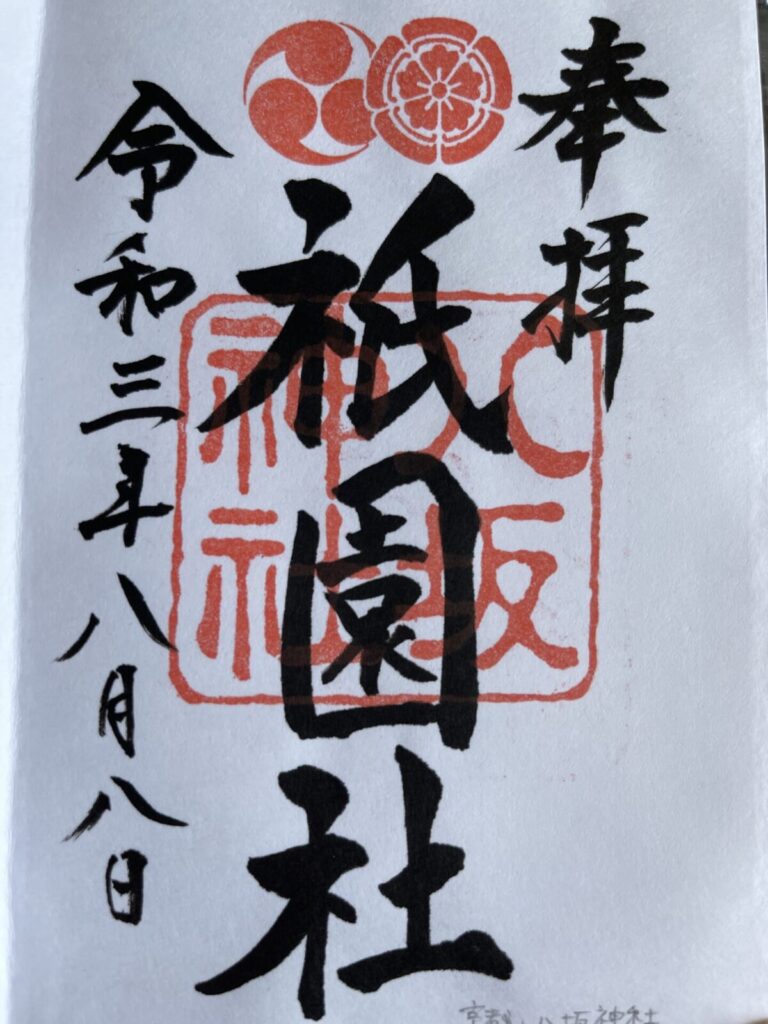 奉拝
八坂神社
祇園社
令和三年八月八日
京都 八坂神社